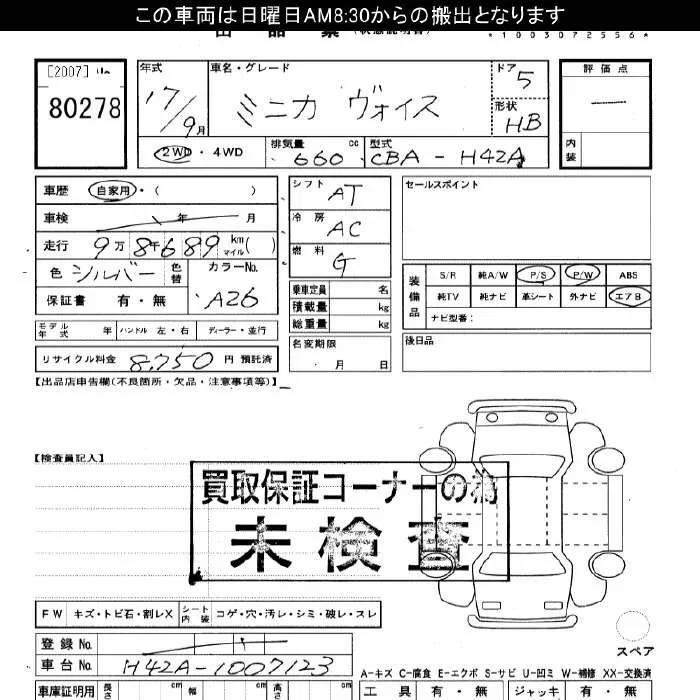 この車両は日曜日AM8:30からの搬出となります
出品票 (状態説明書) *1003072556*
[2007]
80278
年式 17/9月
車名・グレード ミニカ ヴォイス
ドア 5
形状 HB
評価点 —
内装
2WD・4WD
排気量 660 cc
型式 CBA-H42A
車歴 自家用・( )
車検 年 月
走行 9万8千689 km マイル( )
色 シルバー 色替 カラーNo. A26
保証書 有・無
モデル年式 年 ハンドル 左・右 ディーラー・並行
リサイクル料金 8,750 円 預託済
シフト AT
冷房 AC
燃料 G
乗車定員 名
積載量 kg
総重量 kg
名変期限 ・ 月 日
セールスポイント
装備品 S/R 純A/W P/S P/W ABS
純TV 純ナビ 革シート 外ナビ エアB
ナビ型番:
後日品
【出品店申告欄(不良箇所・欠品・注意事項等)】
【検査員記入】
買取保証コーナーの為
未検査
FW キズ・トビ石・割レX シート内装 コゲ・穴・汚レ・シミ・破レ・スレ
登録No.
車台No. H42A-1007123
スペア
A-キズ C-腐食 E-エクボ S-サビ U-凹ミ W-補修 XX-交換済
車庫証明用 長さ cm 幅 cm 高さ cm
工具 有・無 ジャッキ 有・無